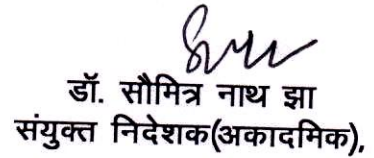 डॉ. सौमित्र नाथ झा
संयुक्त निदेशक(अकादमिक),